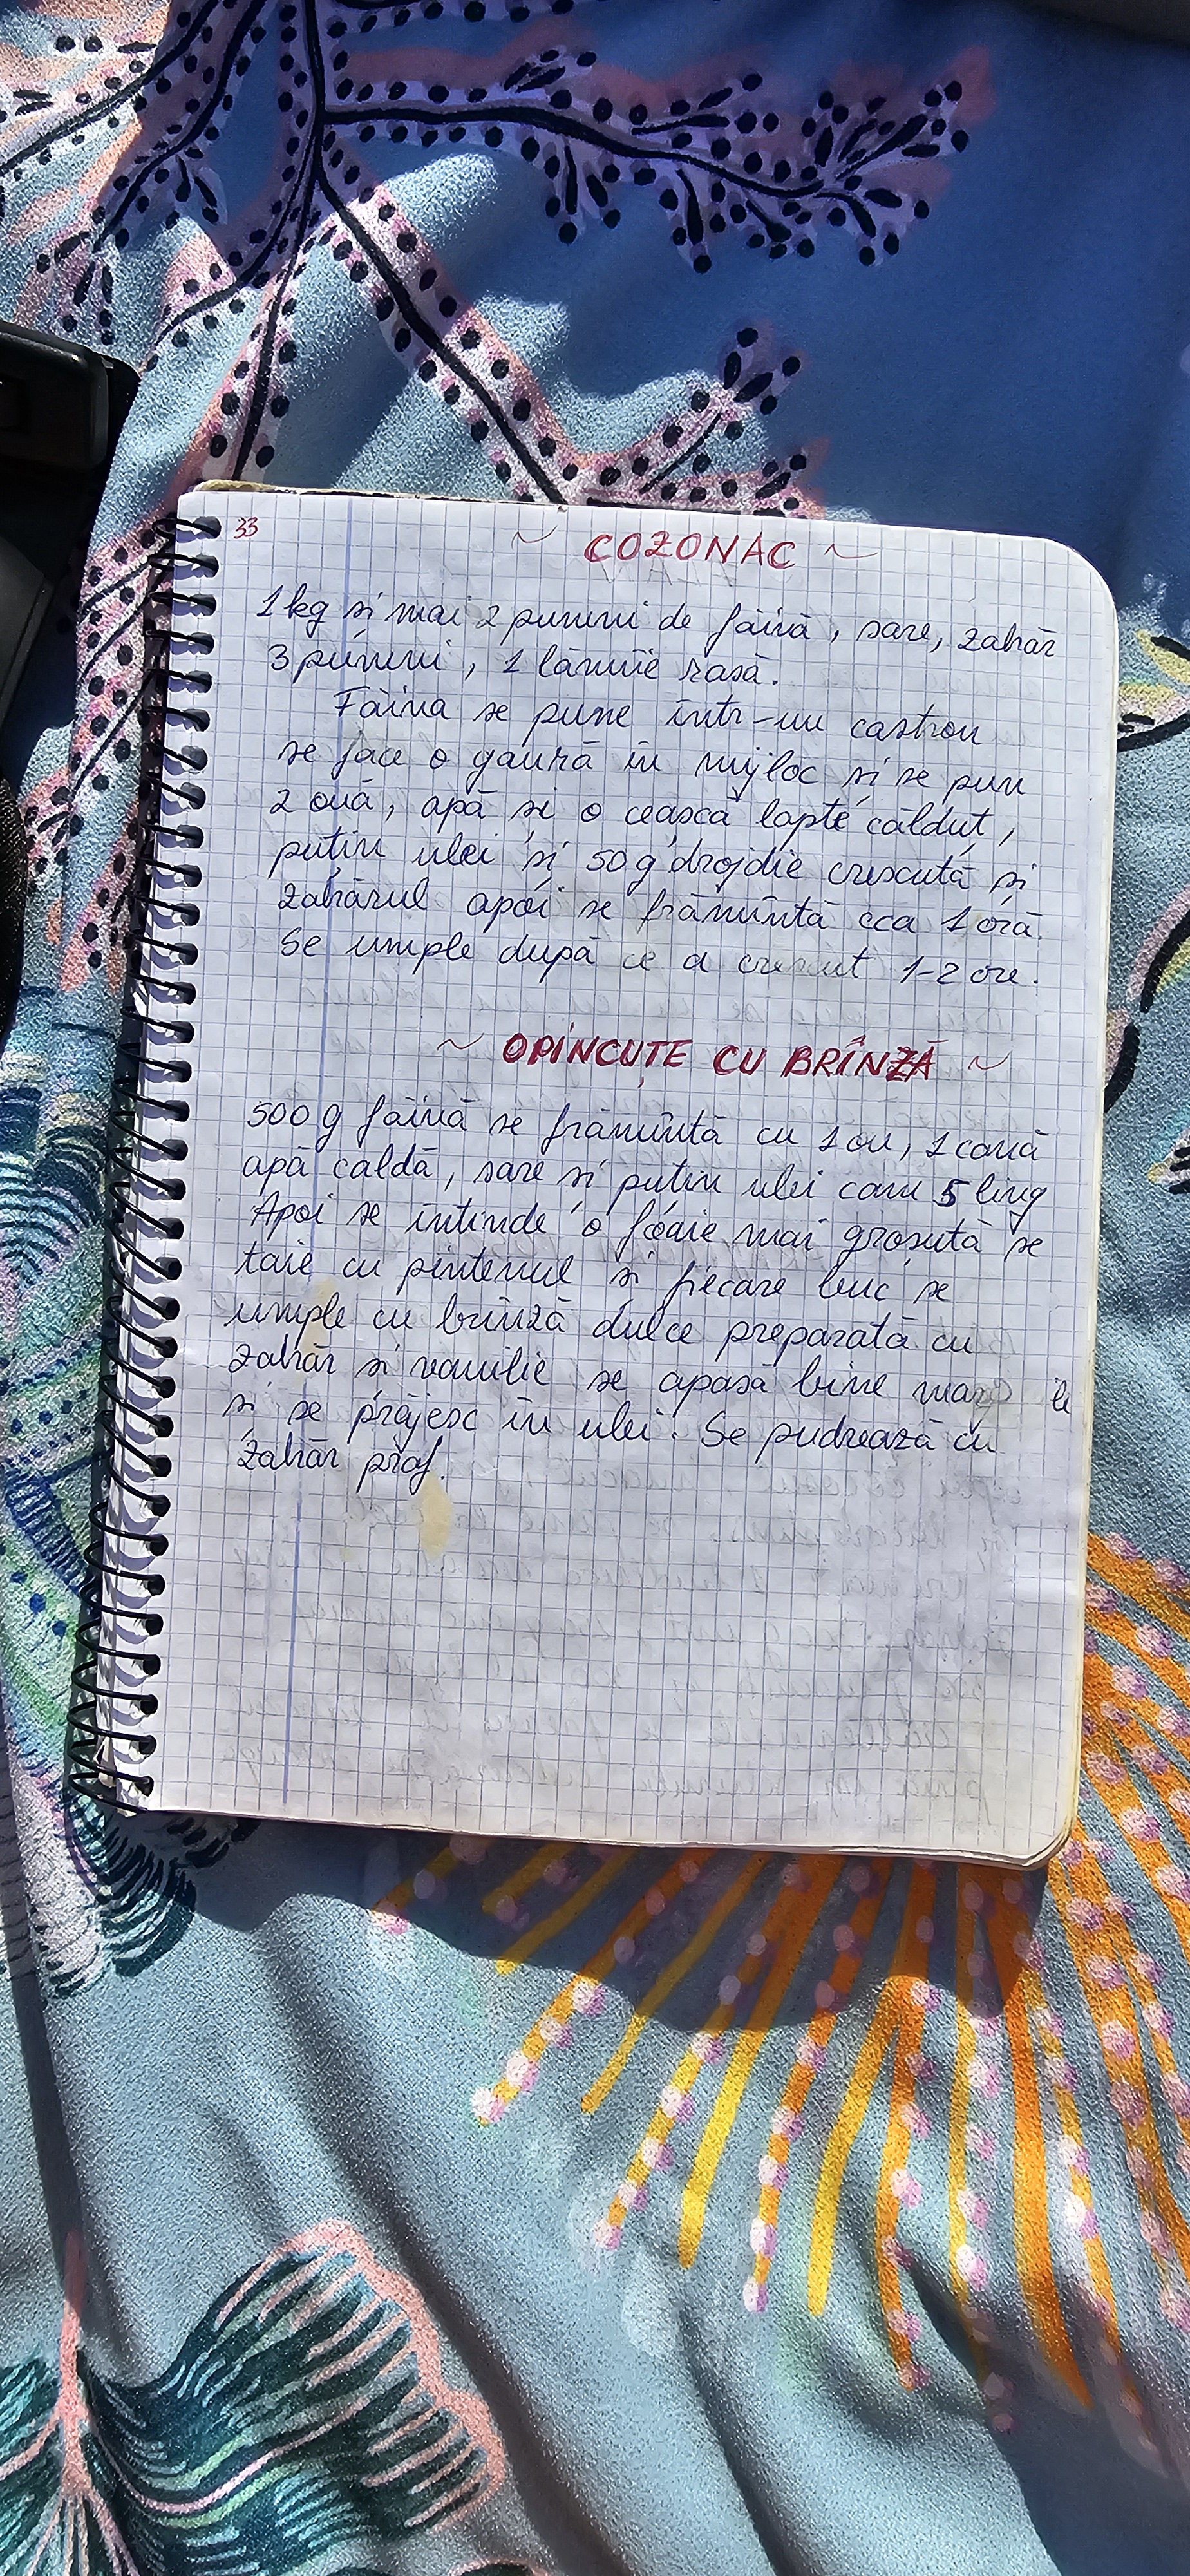 33
~ COZONAC ~
1 kg și mai 2 pumni de făină, sare, zahăr
3 pumni, 1 lămîie rasă.
Făina se pune într-un castron
se face o gaură în mijloc și se pun
2 ouă, apă și o ceașcă lapte călduț,
puțin ulei și 50 g drojdie crescută și
zahărul apoi se frămîntă cca 1 oră.
Se umple după ce a crescut 1-2 ore.
~ OPINCUȚE CU BRÎNZĂ ~
500 g făină se frămîntă cu 1 ou, 1 cană
apă caldă, sare și puțin ulei cam 5 ling
Apoi se întinde o foaie mai grosuță se
taie cu pintenul și fiecare buc se
umple cu brînză dulce preparată cu
zahăr și vanilie se apasă bine marg ile
și se prăjesc în ulei. Se pudrează cu
zahăr praf.